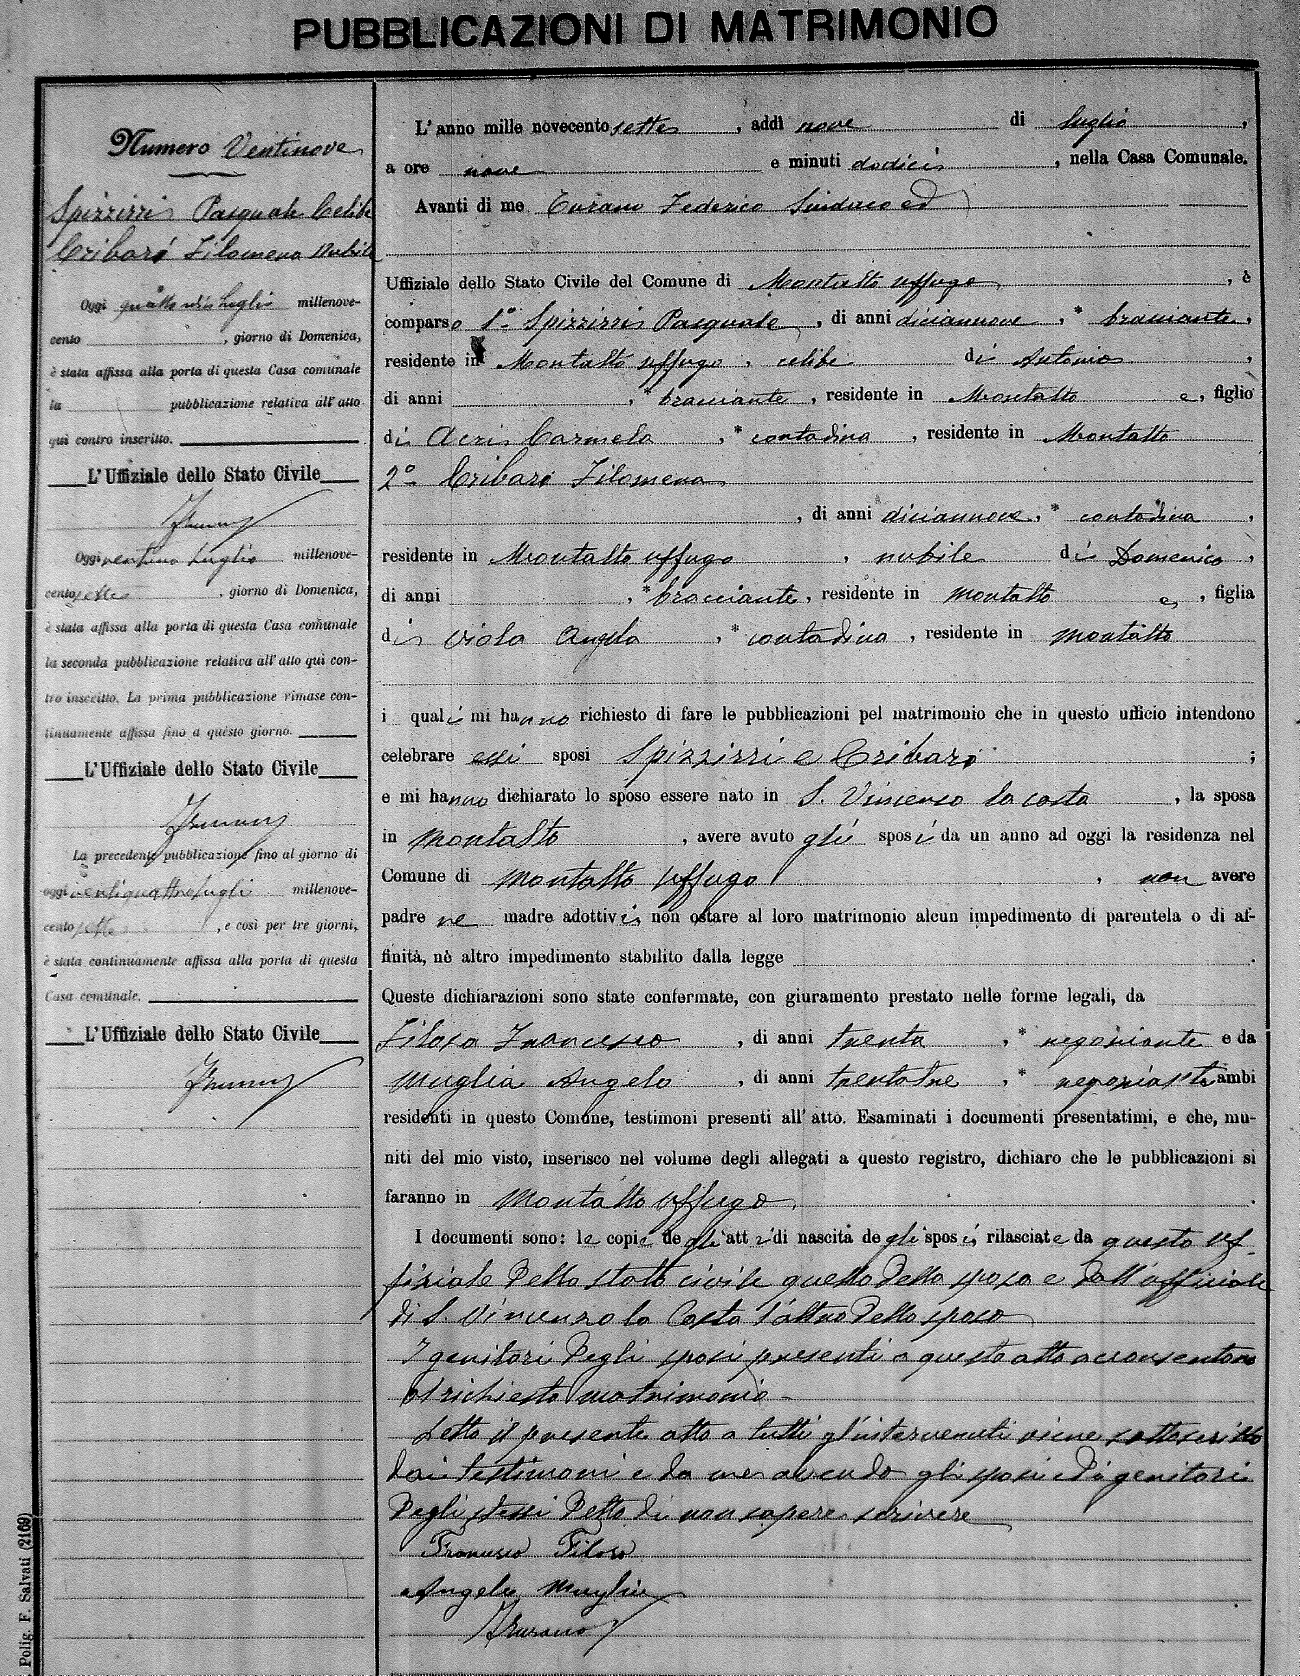 PUBBLICAZIONI DI MATRIMONIO
Numero Ventinove
Spizzirri Pasquale Celibe
Cribari Filomena Nubile
Oggi quattordici Luglio millenove-
cento , giorno di Domenica,
è stata affissa alla porta di questa Casa comunale
la pubblicazione relativa all'atto
qui contro inscritto.
L'Uffiziale dello Stato Civile
Oggi ventuno Luglio millenove-
cento sette , giorno di Domenica,
è stata affissa alla porta di questa Casa comunale
la seconda pubblicazione relativa all'atto qui con-
tro inscritto. La prima pubblicazione rimase con-
tinuamente affissa fino a questo giorno.
L'Uffiziale dello Stato Civile
La precedente pubblicazione fino al giorno di
oggi ventiquattro luglio millenove-
cento sette , e così per tre giorni,
è stata continuamente affissa alla porta di questa
Casa comunale.
L'Uffiziale dello Stato Civile
L'anno mille novecento sette , addì nove di Luglio ,
a ore nove e minuti dodici , nella Casa Comunale.
Avanti di me Turano Federico Sindaco ed
Uffiziale dello Stato Civile del Comune di Montalto Uffugo , è
comparso 1° Spizzirri Pasquale , di anni diciannove , * bracciante ,
residente in Montalto Uffugo , celibe di Antonio ,
di anni , * bracciante , residente in Montalto e , figlio
di Acri Carmela , * contadina , residente in Montalto
2° Cribari Filomena
, di anni diciannove , * contadina ,
residente in Montalto Uffugo , nubile di Domenico ,
di anni , * bracciante , residente in Montalto e , figlia
di Viola Angela , * contadina , residente in Montalto
i quali mi hanno richiesto di fare le pubblicazioni pel matrimonio che in questo ufficio intendono
celebrare essi sposi Spizzirri e Cribari ;
e mi hanno dichiarato lo sposo essere nato in S. Vincenzo la costa , la sposa
in Montalto , avere avuto gli sposi da un anno ad oggi la residenza nel
Comune di Montalto Uffugo , non avere
padre ne madre adottivi non ostare al loro matrimonio alcun impedimento di parentela o di af-
finità, nè altro impedimento stabilito dalla legge .
Queste dichiarazioni sono state confermate, con giuramento prestato nelle forme legali, da
Filoso Francesco , di anni trenta , * negoziante e da
Muglia Angelo , di anni trentatre , * negoziante ambi
residenti in questo Comune, testimoni presenti all'atto. Esaminati i documenti presentatimi, e che, mu-
niti del mio visto, inserisco nel volume degli allegati a questo registro, dichiaro che le pubblicazioni si
faranno in Montalto Uffugo .
I documenti sono: le copie degli atti di nascita degli sposi, rilasciate da questo Uf-
fiziale dello stato civile quello della sposa e dall'uffiziale
di S. Vincenzo la Costa l'altro dello sposo
I genitori degli sposi presenti a questo atto acconsentono
al richiesto matrimonio -
Letto il presente atto a tutti gl'intervenuti viene sottoscritto
dai testimoni e da me avendo gli sposi ed i genitori
degli stessi detto di non sapere scrivere
Francesco Filoso
Angelo Muglia
FTurano
Polig. F. Salvati (2169)